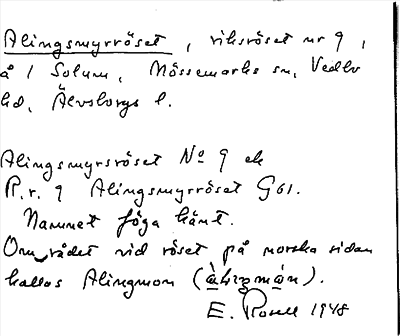 Alingsmyrröset, riksröset nr 9,
å 1 Solum, Mossemarks sn, Vedbo
hd, Älvsborgs l.
Alingsmyrsröset No 9 ek
R.r. 9 Alingsmyrröset G61.
Namnet föga känt.
Området vid röset på norska sidan
kallas Alingmon (
E. Rosell 1948